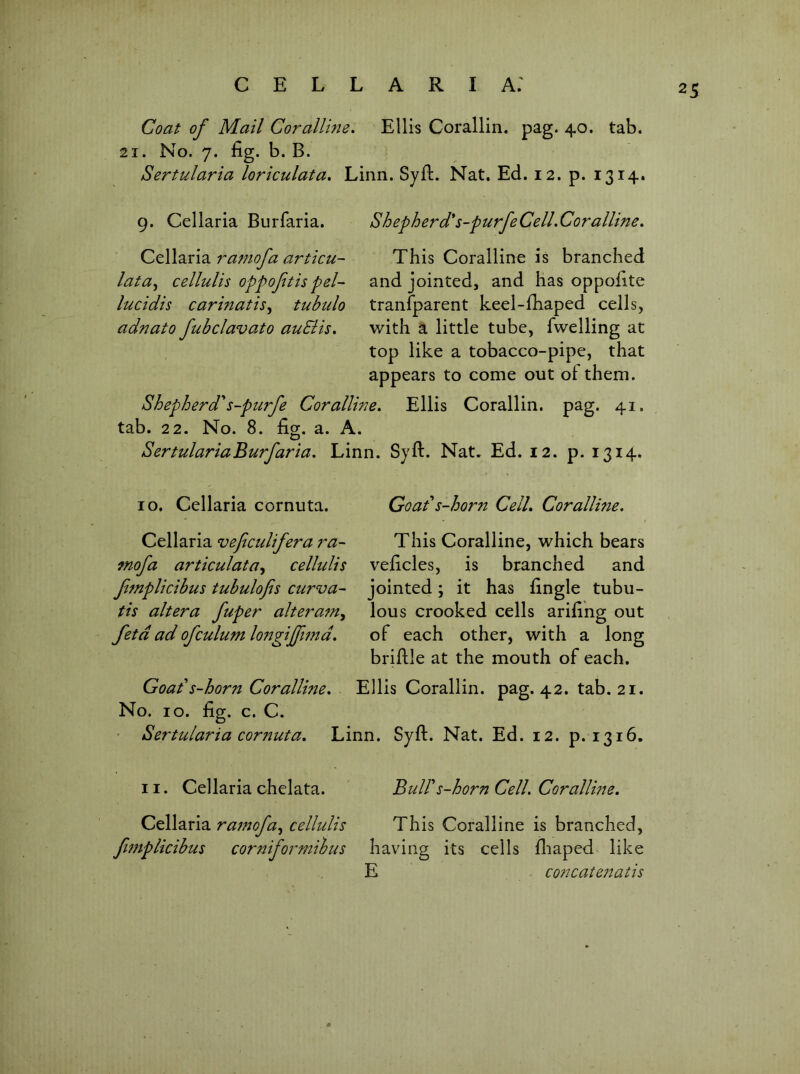 CELLARIA. 25
Coat of Mail Coralline. Ellis Corallin. pag. 40. tab.
21. No. 7. fig. b. B.
Sertularia loriculata. Linn. Syſt. Nat. Ed. 12. p. 1314.
9. Cellaria Burſaria.
Shepherd's-purſe Cell. Coralline.
Cellaria ramoſa articu-
lata, cellulis oppoſitis pel-
lucidis carinatis, tubulo
adnato ſubclavato auctis.
This Coralline is branched
and jointed, and has oppoſite
tranſparent keel-ſhaped cells,
with a little tube, ſwelling at
top like a tobacco-pipe, that
appears to come out of them.
Shepherd's-purſe Coralline. Ellis Corallin. pag. 41.
tab. 22. No. 8. fig. a. A.
Sertularia Burſaria. Linn. Syſt. Nat. Ed. 12. p. 1314.
10. Cellaria cornuta.
Goat's-horn Cell. Coralline.
Cellaria veſiculifera ra-
moſa articulata, cellulis
ſimplicibus tubuloſis curva-
tis altera ſuper alteram,
ſetâ ad oſculum longiſſimâ.
This Coralline, which bears
veſicles, is branched and
jointed; it has ſingle tubu-
lous crooked cells ariſing out
of each other, with a long
briſtle at the mouth of each.
Goat's-horn Coralline. Ellis Corallin. pag. 42. tab. 21.
No. 10. fig. c. C.
Sertularia cornuta. Linn. Syſt. Nat. Ed. 12. p. 1316.
11. Cellaria chelata.
Bull's-horn Cell. Coralline.
Cellaria ramoſa, cellulis
ſimplicibus corniformibus
This Coralline is branched,
having its cells ſhaped like
E concatenatis